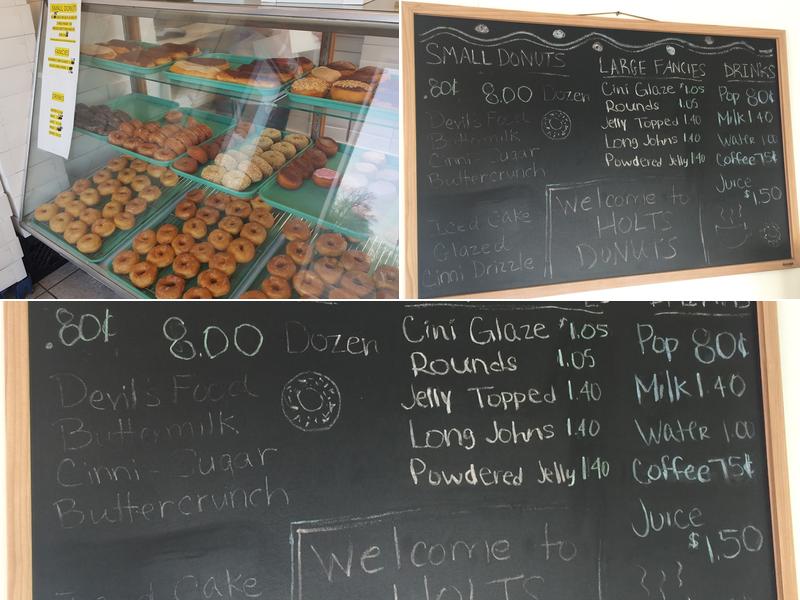 SMALL DONUTS
FANCIES
DRINKS
SMALL DONUTS
.80¢ 8.00 Dozen
Devil's Food
Buttermilk
Cinni-Sugar
Buttercrunch
Iced Cake
Glazed
Cinni Drizzle
LARGE FANCIES
Cini Glaze $1.05
Rounds 1.05
Jelly Topped 1.40
Long Johns 1.40
Powdered Jelly 1.40
Welcome to
HOLTS
DONUTS
DRINKS
Pop 80¢
Milk 1.40
Water 1.00
Coffee 75¢
Juice
$1.50
.80¢ 8.00 Dozen
Devil's Food
Buttermilk
Cinni-Sugar
Buttercrunch
Iced Cake
Cini Glaze $1.05
Rounds 1.05
Jelly Topped 1.40
Long Johns 1.40
Powdered Jelly 1.40
Welcome to
HOLTS
DRINKS
Pop 80¢
Milk 1.40
Water 1.00
Coffee 75¢
Juice
$1.50